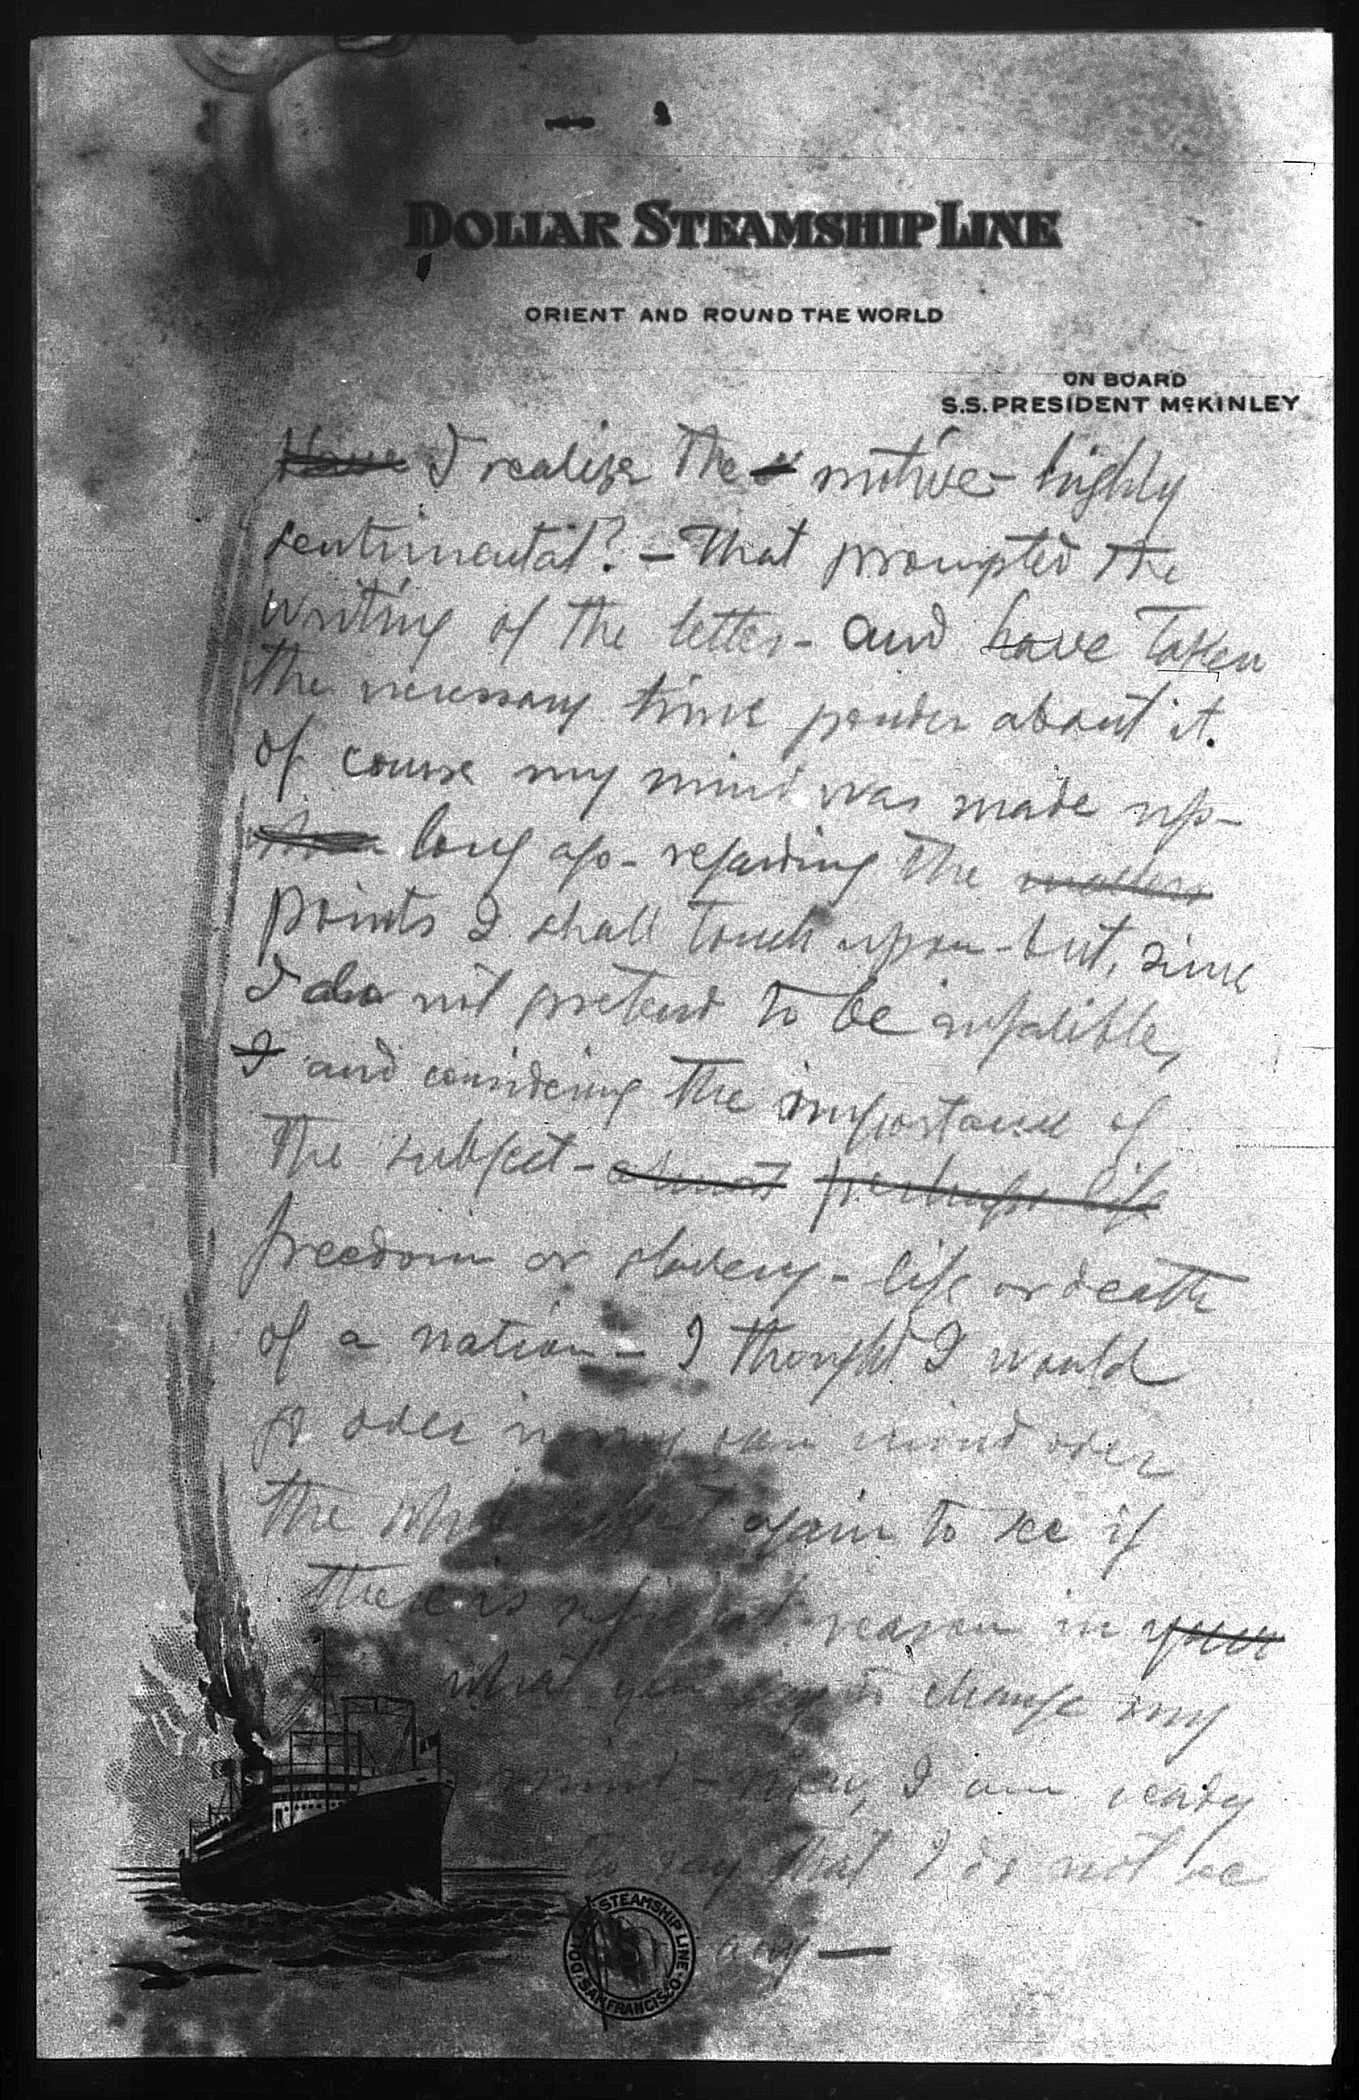 DOLLAR STEAMSHIP LINE
ORIENT AND ROUND THE WORLD
ON BOARD
S.S. PRESIDENT McKINLEY
Have I realize the motive - highly
sentimental? - That prompted the
writing of the letter - and have taken
the necessary time ponder about it.
of course my mind was made up -
long ago - regarding the matters
points I shall touch upon - but, since
I do not pretend to be infalible,
I and considering the importance of
the subject - almost perhaps life
freedom or slavery - life or death
of a nation - I thought I would
go over in my own mind over
the again to see if
there is reason in your
what you say to change my
mind - I am ready
to say that I do not see
any —
DOLLAR STEAMSHIP LINE · SAN FRANCISCO ·